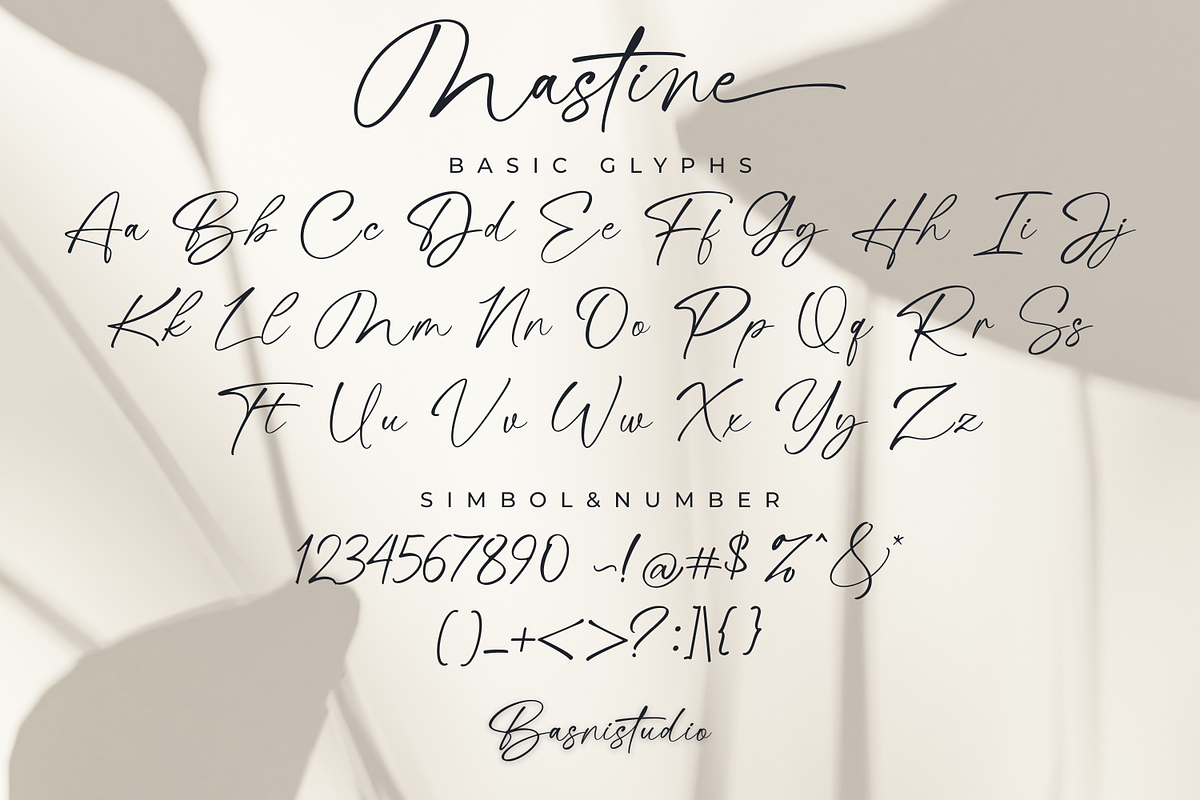 Mastine
BASIC GLYPHS
Aa Bb Cc Dd Ee Ff Gg Hh Ii Jj
Kk Ll Mm Nn Oo Pp Qq Rr Ss
Tt Uu Vv Ww Xx Yy Zz
SIMBOL&NUMBER
1234567890 ~!@#$ %^&*
()_+<>?:]|\{}
Basnistudio